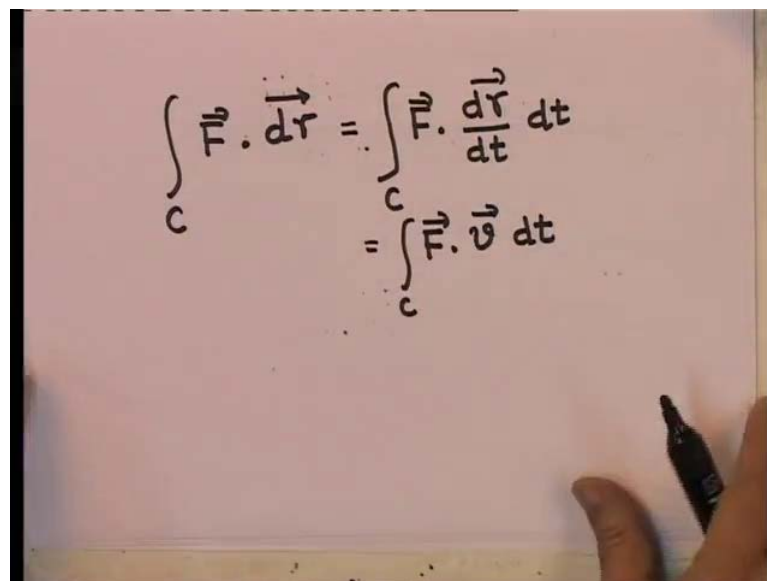 ∫_C F⃗ . d⃗r = ∫_C F⃗ . d⃗r/dt dt
= ∫_C F⃗ . v⃗ dt